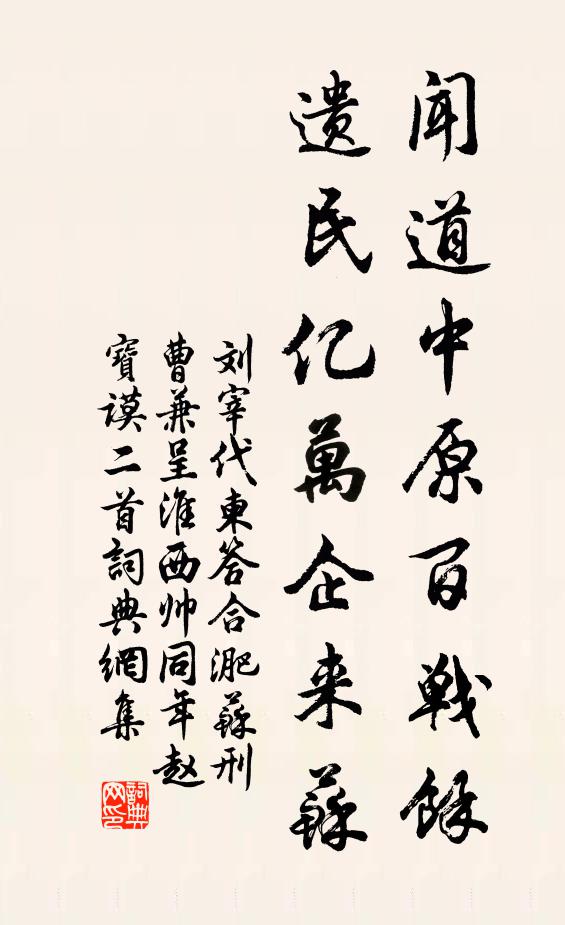 闻道中原百戦餘
遗民亿萬企来蘇
刘宰代東答合淝蘇刑
曹兼呈淮西帅同年赵
寶谟二首詞典網集
詞典
网印